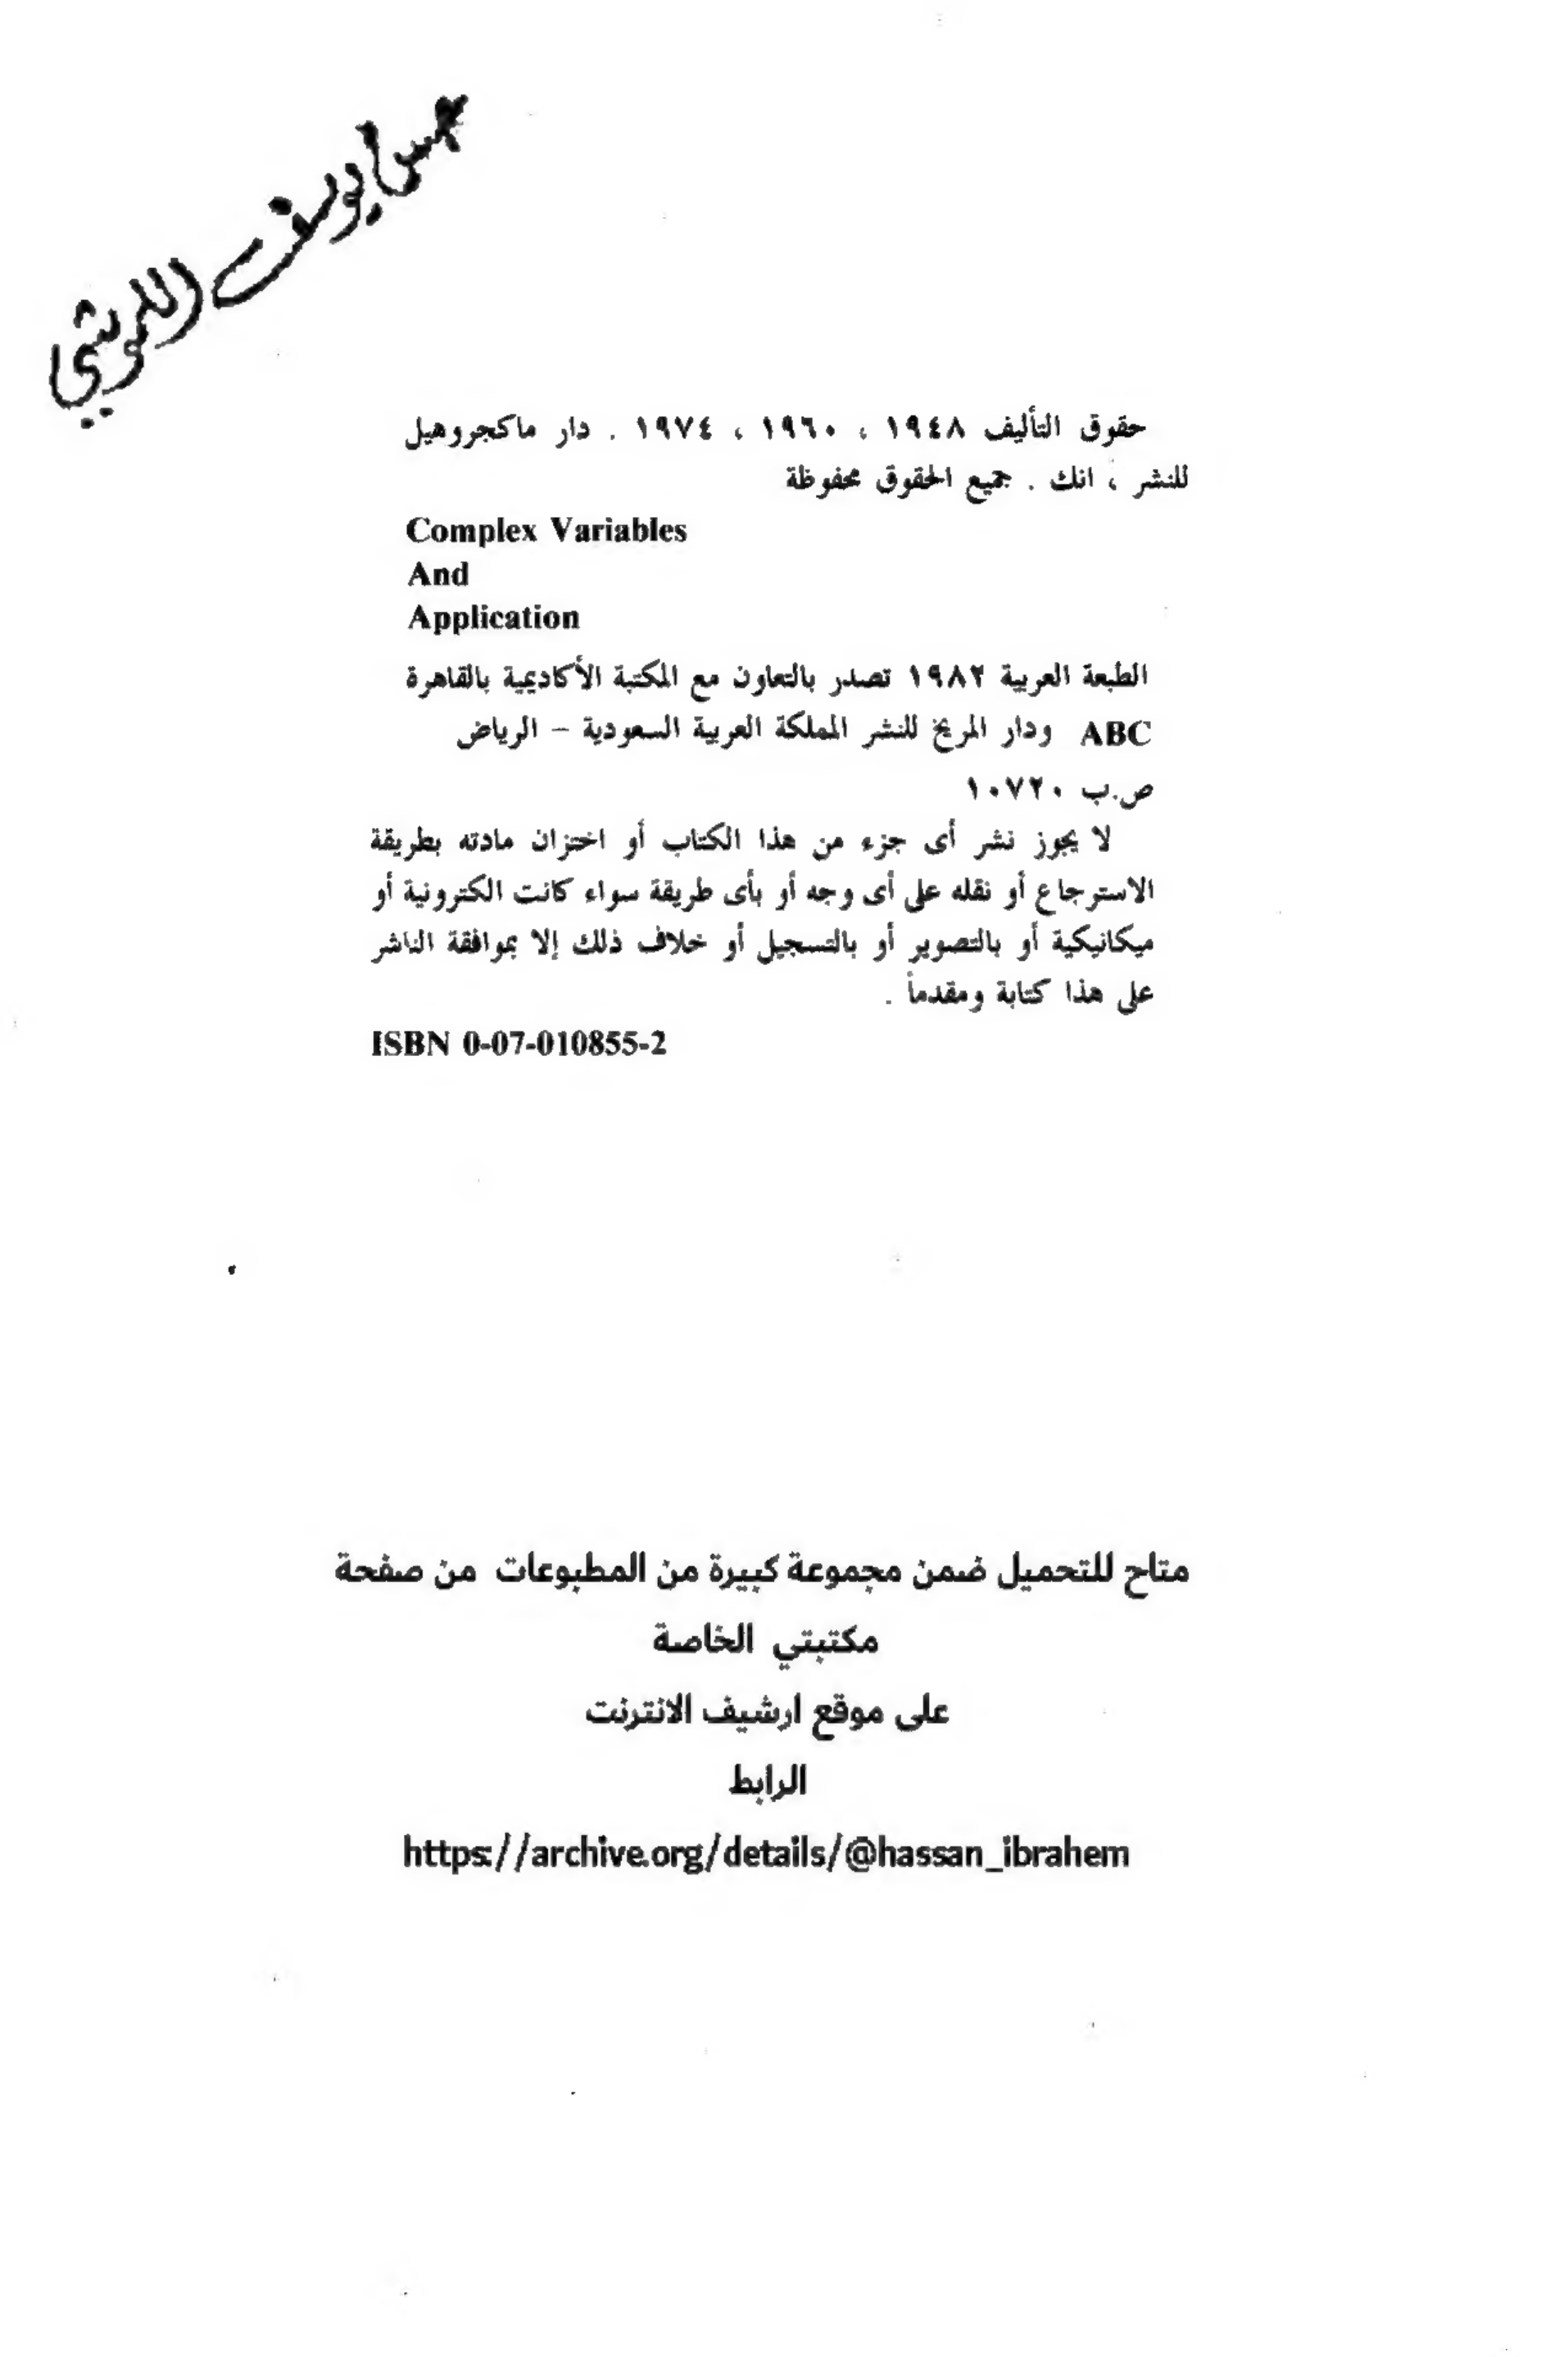 يوسف
حقوق التأليف ١٩٤٨ ، ١٩٦٠ ، ١٩٧٤ . دار ماكجروهيل
للنشر ، انك . جميع الحقوق محفوظة
Complex Variables
And
Application
الطبعة العربية ١٩٨٢ تصدر بالتعاون مع المكتبة الأكاديمية بالقاهرة
ABC ودار المريخ للنشر المملكة العربية السعودية – الرياض
ص.ب ١٠٧٢٠
لا يجوز نشر أى جزء من هذا الكتاب أو اختزان مادته بطريقة
الاسترجاع أو نقله على أى وجه أو بأى طريقة سواء كانت الكترونية أو
ميكانيكية أو بالتصوير أو بالتسجيل أو خلاف ذلك إلا بموافقة الناشر
على هذا كتابة ومقدماً .
ISBN 0-07-010855-2
متاح للتحميل ضمن مجموعة كبيرة من المطبوعات من صفحة
مكتبتي الخاصة
على موقع ارشيف الانترنت
الرابط
https://archive.org/details/@hassan_ibrahem